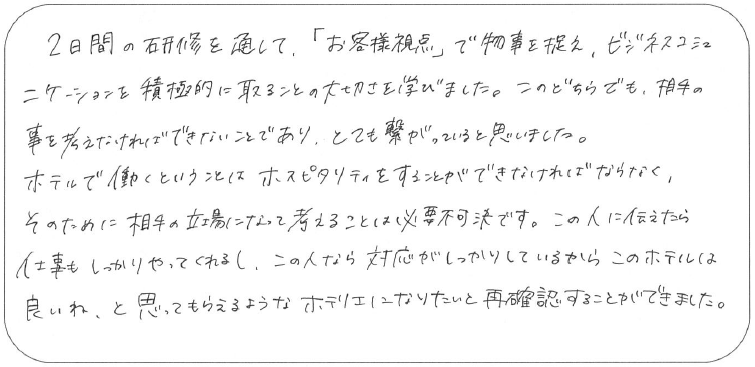 2日間の研修を通して、「お客様視点」で物事を捉え、ビジネスコミュ
ニケーションを積極的に取ることの大切さを学びました。このどちらでも、相手の
事を考えなければできないことであり、とても繋がっていると思いました。
ホテルで働くということはホスピタリティをすることができなければならなく、
そのために相手の立場になって考えることは必要不可決です。この人に伝えたら
仕事もしっかりやってくれるし、この人なら対応がしっかりしているからこのホテルは
良いね、と思ってもらえるようなホテリエになりたいと再確認することができました。